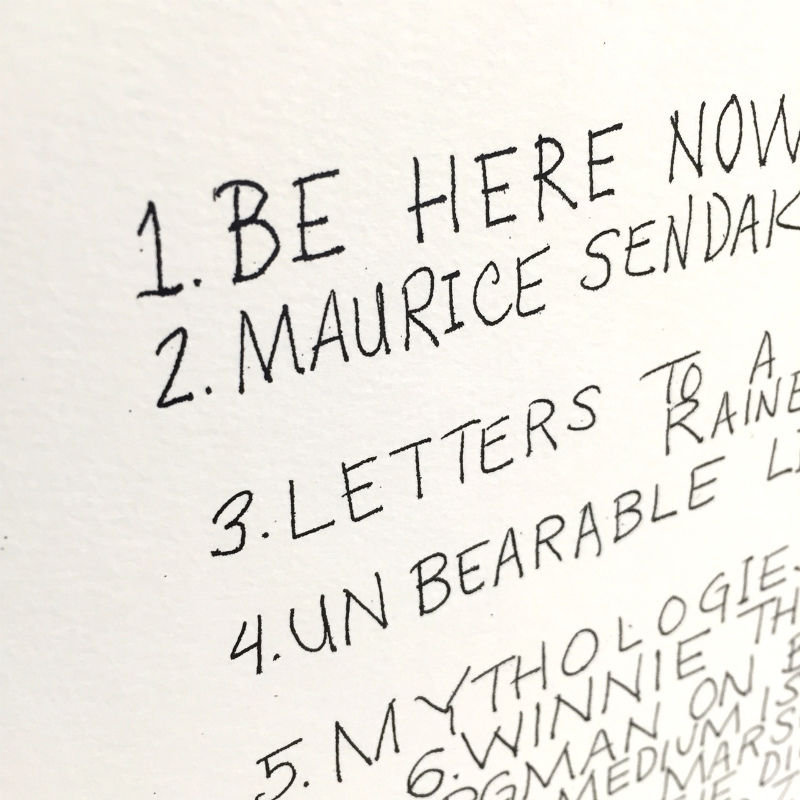 1. BE HERE NOW
2. MAURICE SENDAK
3. LETTERS TO A
RAINE
4. UN BEARABLE LI
5. MYTHOLOGIE
6. WINNIE TH
GMAN ON B
MEDIUM IS
MARS